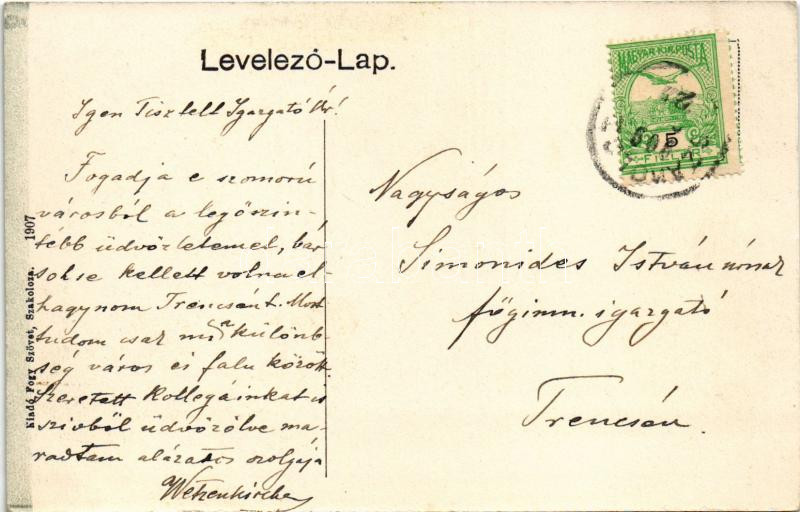 Levelező-Lap.
MAGYAR KIR. POSTA
5
FILLÉR
Igen Tisztelt Igazgató Úr!
Fogadja e szomorú
városból a legőszin-
tébb üdvözletemet, bár
sohse kellett volna el-
hagynom Trencsént. Most
tudom csak mi a különb-
ség város és falu között
Szeretett kollegáinkat is
szivből üdvözölve ma-
radtam alázatos szolgája
Nagyságos
Simonides István úrnak
főgimn. igazgató
Trencsén.
Kiadó Fogy Szövet, Szakolcza. 1907